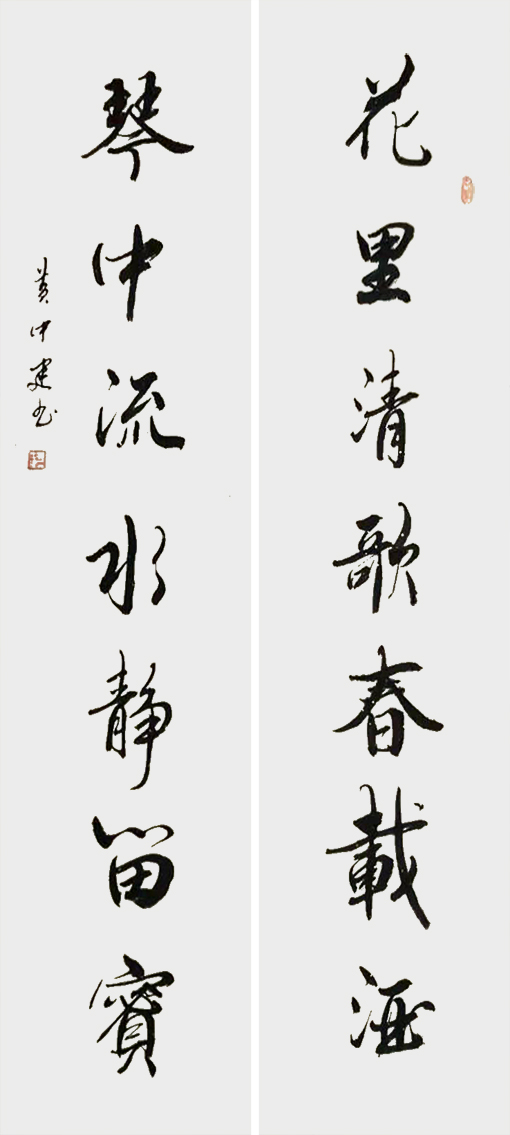 花里清歌春載酒
琴中流水靜留賓
黄中建书